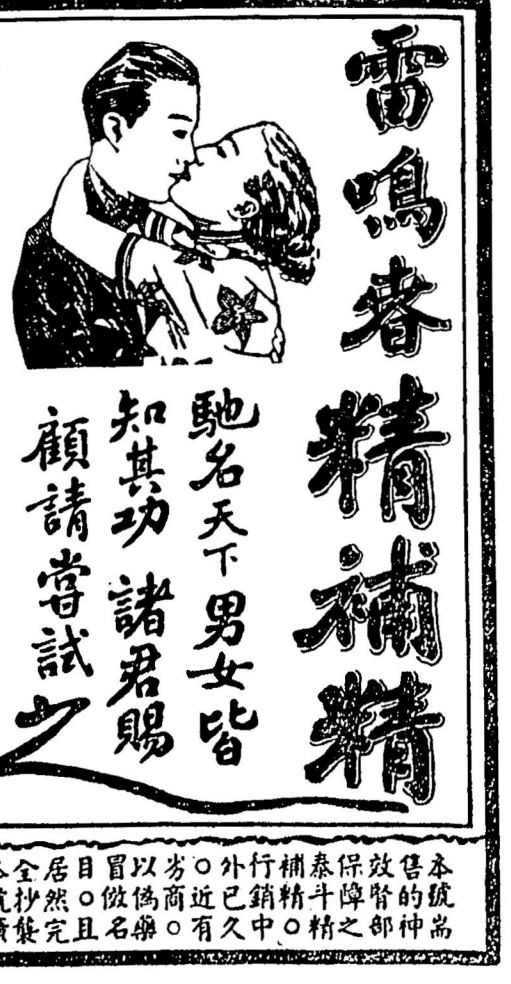 雷鳴春精補精
馳名天下男女皆
知其功 諸君賜
顧請嘗試之
本號耑
售的神
效腎部
保障之
泰斗精
補精○
行銷中
外已久
○近有
劣商○
以偽藥
冒倣名
目○且
居然完
全抄襲